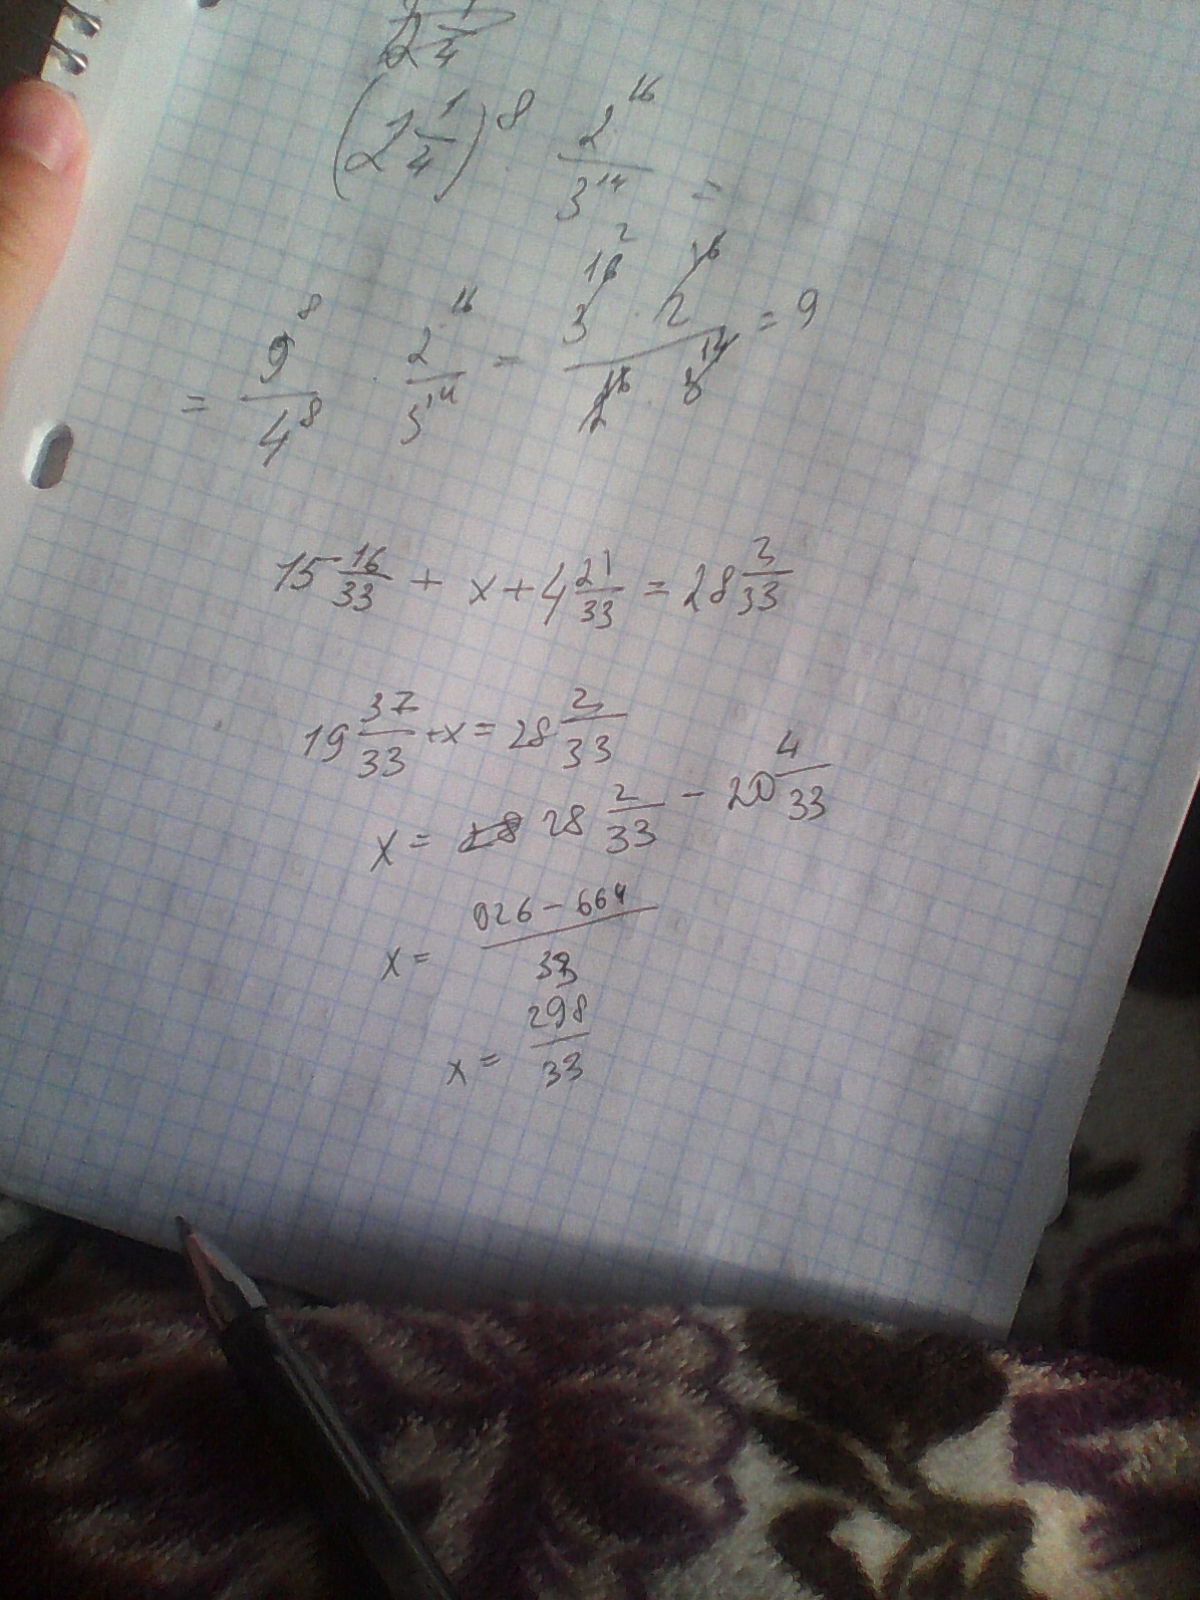 2 1/4
(2 1/4)^8 · 2^16/3^14 =
= 9^8/4^8 · 2^16/3^14 = 3^16 · 2^16 / 2^16 · 3^14 = 9
15 16/33 + x + 4 21/33 = 28 2/33
19 37/33 + x = 28 2/33
x = 28 28 2/33 - 20 4/33
x = 926 - 664 / 33
x = 298/33